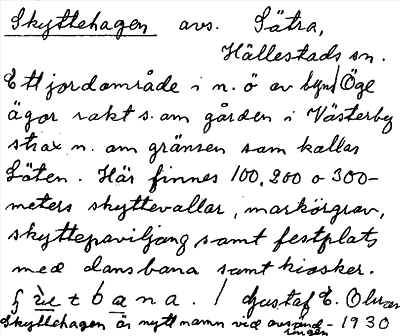 Skyttehagen avs. Sätra,
Hällestads sn.
Ett jordområde i n.ö av byns Öge
ägor rakt s. om gården i Västerby
strax n. om gränsen som kallas
Säten. Här finnes 100, 200 o 300-
meters skyttevallar, markörgrav,
skyttepaviljong samt festplats
med dansbana samt kiosker.
bana. / Gustaf E. Olsson
Skyttehagen är nytt namn vid - 1930